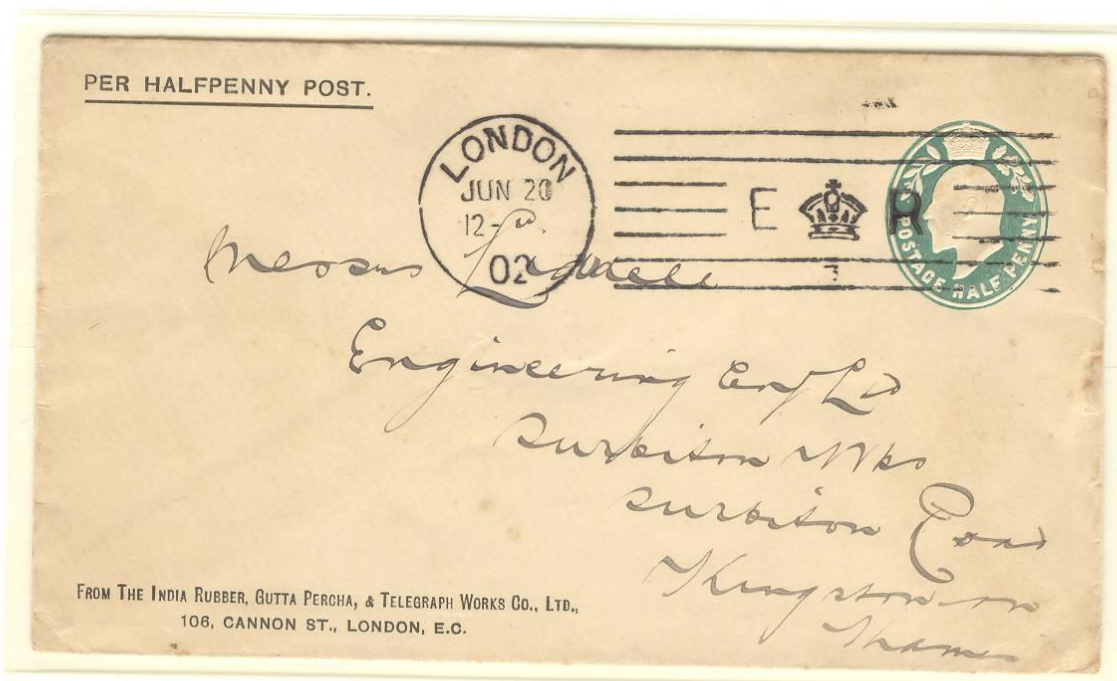 PER HALFPENNY POST.
LONDON
JUN 20
12-
02
E R
POSTAGE HALF PENNY
Messrs
Engineering Ltd
Surbiton Wks
Surbiton Road
Kingston-on
Thames
FROM THE INDIA RUBBER, GUTTA PERCHA, & TELEGRAPH WORKS CO., LTD.,
106, CANNON ST., LONDON, E.C.